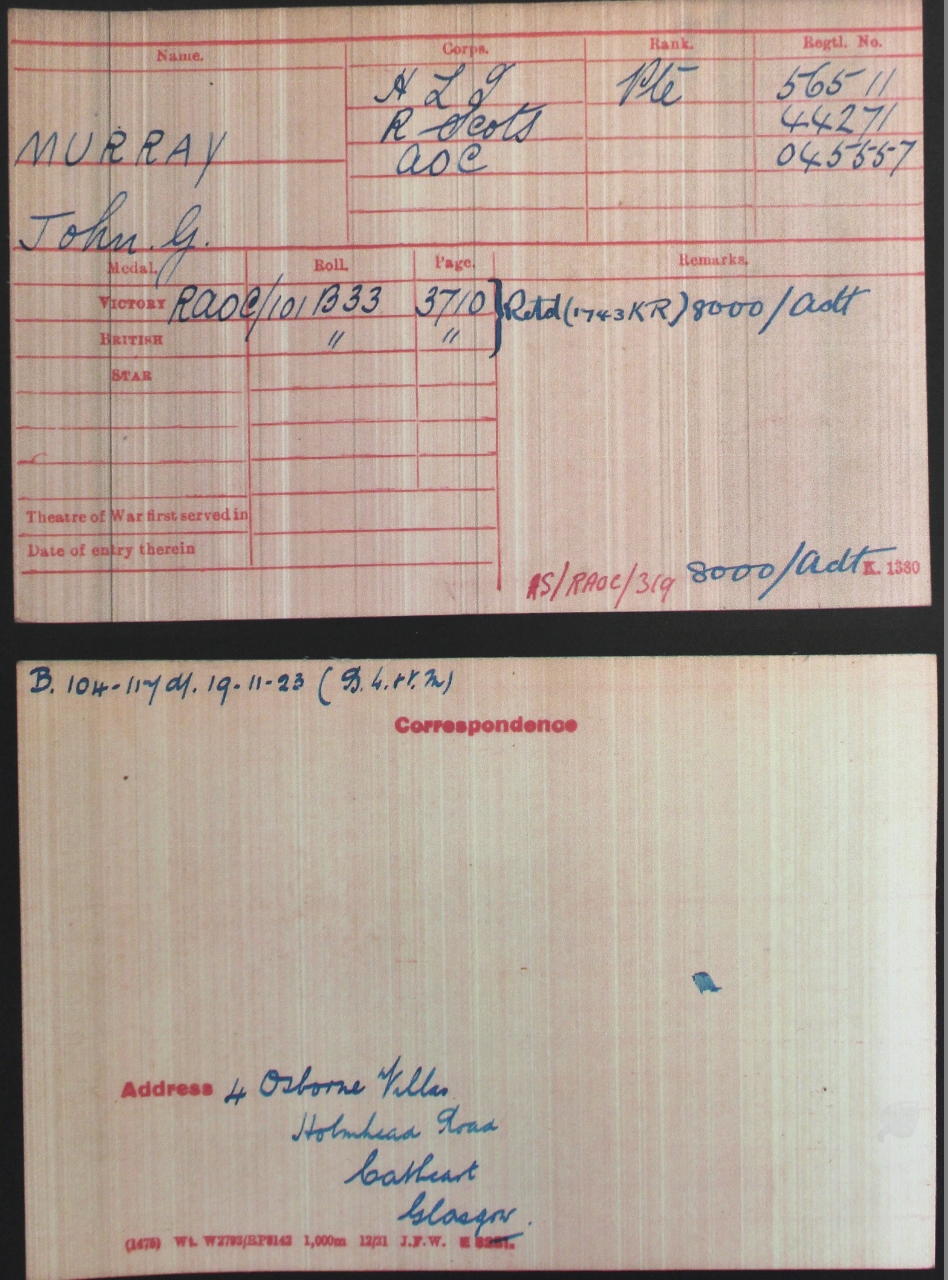 Name. Corps. Rank. Regtl. No.
H L I Pte 56511
R Scots 44271
MURRAY AOC 045557
John. G.
Medal. Roll. Page. Remarks.
VICTORY RAOC/101 B33 3710 } Retd (1743KR) 8000/Adt
BRITISH " "
STAR
Theatre of War first served in
Date of entry therein
IS/RAOC/319 8000/Adt K. 1380
B. 104-117 d/. 19-11-23
Correspondence
Address 4 Osborne Villas
Holmhead Road
Cathcart
Glasgow.
(1475) Wt. W2793/RP8142 1,000m 12/21 J.F.W.